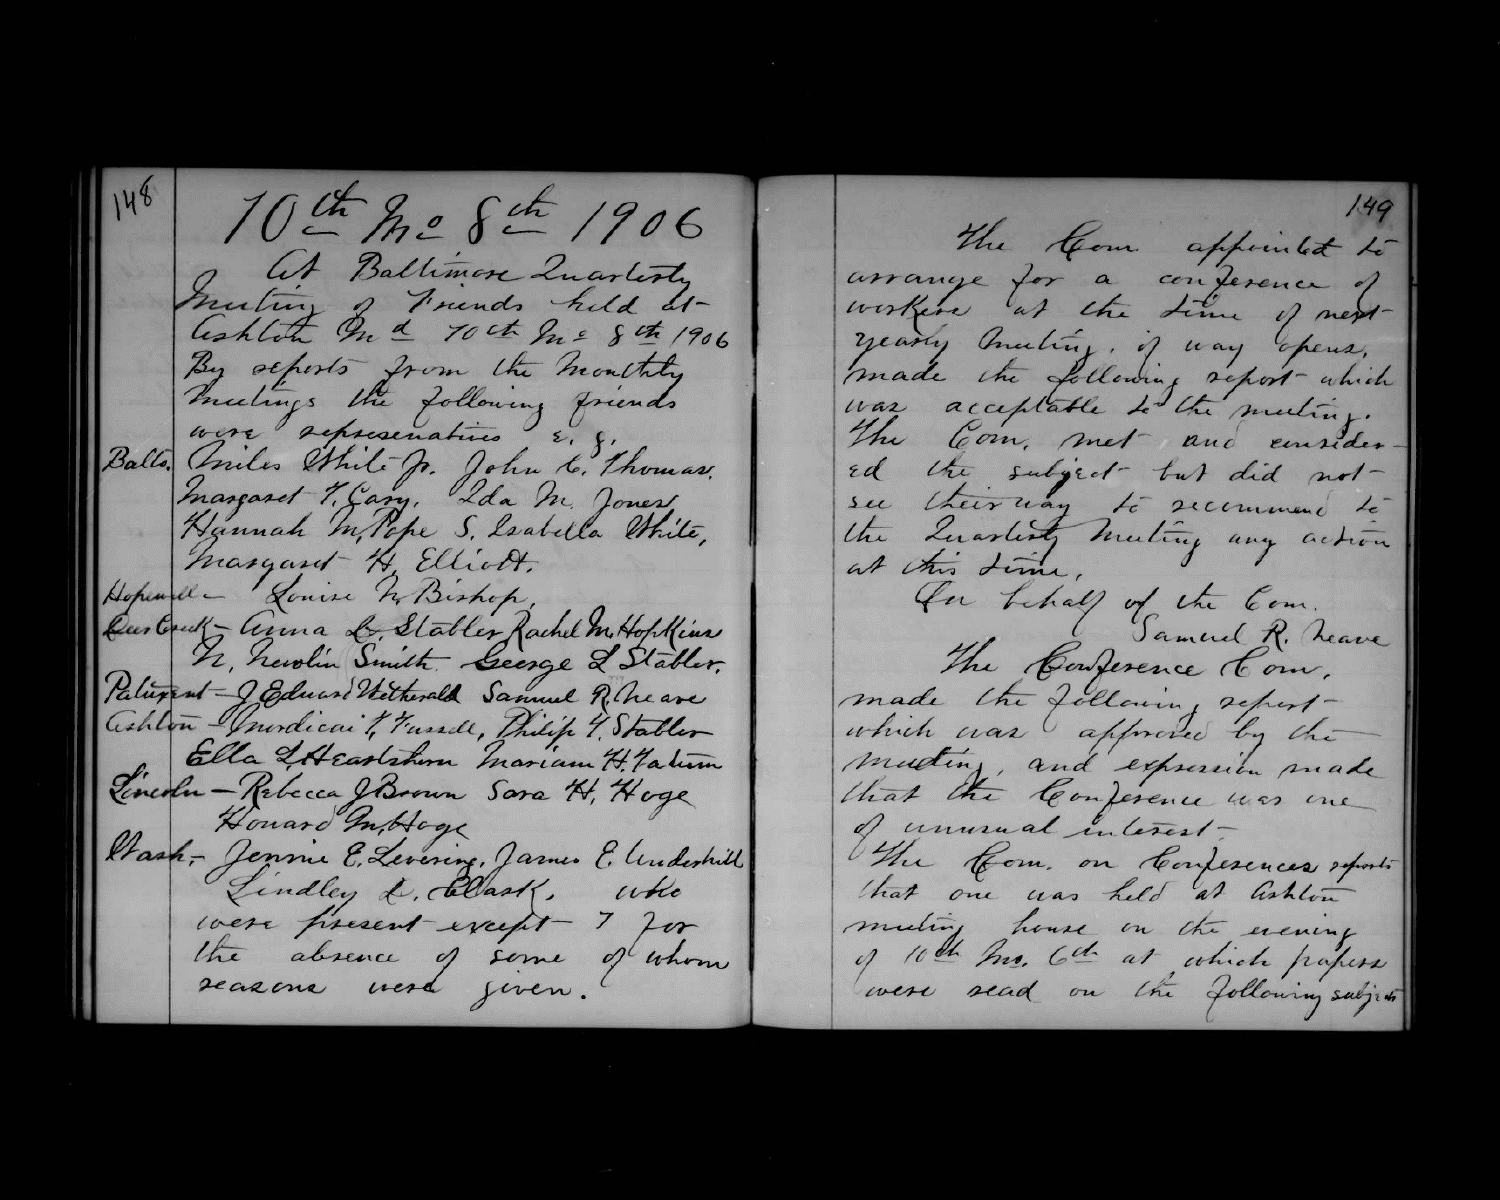 148
10th Mo 8th 1906
At Baltimore Quarterly
Meeting of Friends held at
Ashton Md 10th Mo 8th 1906
By reports from the Monthly
Meetings the following friends
were representatives
Balto. Miles White Jr. John C. Thomas.
Margaret T. Cary, Ida M. Jones
Hannah M. Pope S. Isabella White,
Margaret H. Elliott.
Hopewell - Louise N. Bishop,
Deer Creek - Anna L. Stabler Rachel M. Hopkins
N. Newlin Smith George L Stabler.
Patuxent - J Edward Wetherald Samuel R. Neave
Ashton - Mordicai T. Fussell, Philip T. Stabler
Ella L. Heartshorn Mariam H. Tatum
Lincoln - Rebecca J Brown Sara H. Hoge
Howard M. Hoge
Wash. - Jennie E. Levering, James E. Underhill
Lindley D. Clark. who
were present except 7 for
the absence of some of whom
reasons were given.
149
The Com appointed to
arrange for a conference of
workers at the time of next
yearly Meeting. if way opens,
made the following report which
was acceptable to the meeting.
The Com. met and consider-
ed the subject but did not
see their way to recommend to
the Quarterly Meeting any action
at this time.
On behalf of the Com.
Samuel R. Neave
The Conference Com.
made the following report
which was approved by the
meeting, and expression made
that the Conference was one
of unusual interest -
The Com. on Conferences reports
that one was held at Ashton
meeting house on the evening
of 10th Mo. 6th at which papers
were read on the following subjects